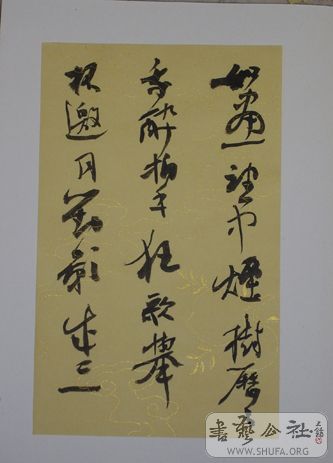 如畫望中煙樹歷々
醉拍手狂歌舉
杯邀月對影成三
書藝公社
WWW.SHUFA.ORG